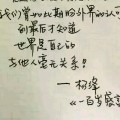 我们曾如此期盼外界的认可
到最后才知道
世界是自己的
与他人毫无关系!
一杨绛
一百岁感言